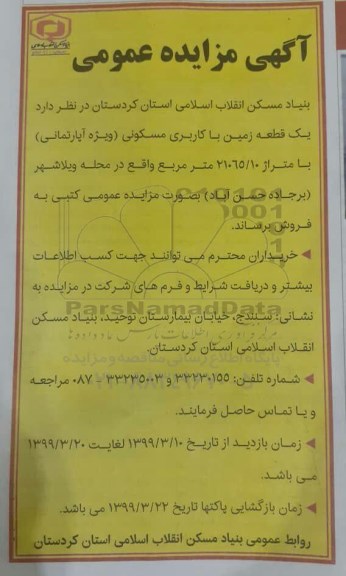 آگهی مزایده عمومی
بنیاد مسکن انقلاب اسلامی استان کردستان در نظر دارد
یک قطعه زمین با کاربری مسکونی (ویژه آپارتمانی)
با متراژ ۲۱۰٦٥/۱۰ متر مربع واقع در محله ویلاشهر
(برجاده حسن آباد) بصورت مزایده عمومی کتبی به
فروش برساند.
خریداران محترم می توانند جهت کسب اطلاعات
بیشتر و دریافت شرایط و فرم های شرکت در مزایده به
ParsNamadData
نشانی: سنندج، خیابان بیمارستان توحید، بنیاد مسکن
انقلاب اسلامی استان کردستان.
پایگاه اطلاع رسانی مناقصه و مزایده
شماره تلفن: ۳۳۲۳۰۱٥٥ و ۳۳۲۳٥۰۰۳ – ۰۸۷ مراجعه
و یا تماس حاصل فرمایند.
زمان بازدید از تاریخ ۱۳۹۹/۳/۱۰ لغایت ۱۳۹۹/۳/۲۰
می باشد.
زمان بازگشایی پاکتها تاریخ ۱۳۹۹/۳/۲۲ می باشد.
روابط عمومی بنیاد مسکن انقلاب اسلامی استان کردستان